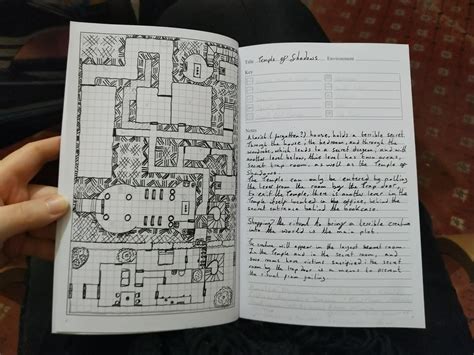 Title Temple of Shadows Environment
Key
Notes
A lavish (forgotten?) house, holds a terrible secret.
Through the house; the bedroom, and through the
which leads to a secret dungeon, and with
another level below, this level has two areas,
secret trap room, as well as the Temple of
Shadows.
The Temple can only be entered by pulling
the lever from the room by the Trap door.
To exit the Temple, there is another lever in the
Temple itself located in the office, behind the
secret entrance behind the bookcase
the ritual to bring a terrible creature
into the world is the main plot
The creature will appear in the largest room.
In the Temple and in the secret room, and
rooms have victims sacrificed; the secret
room by the trap door is a means to prevent
the ritual from